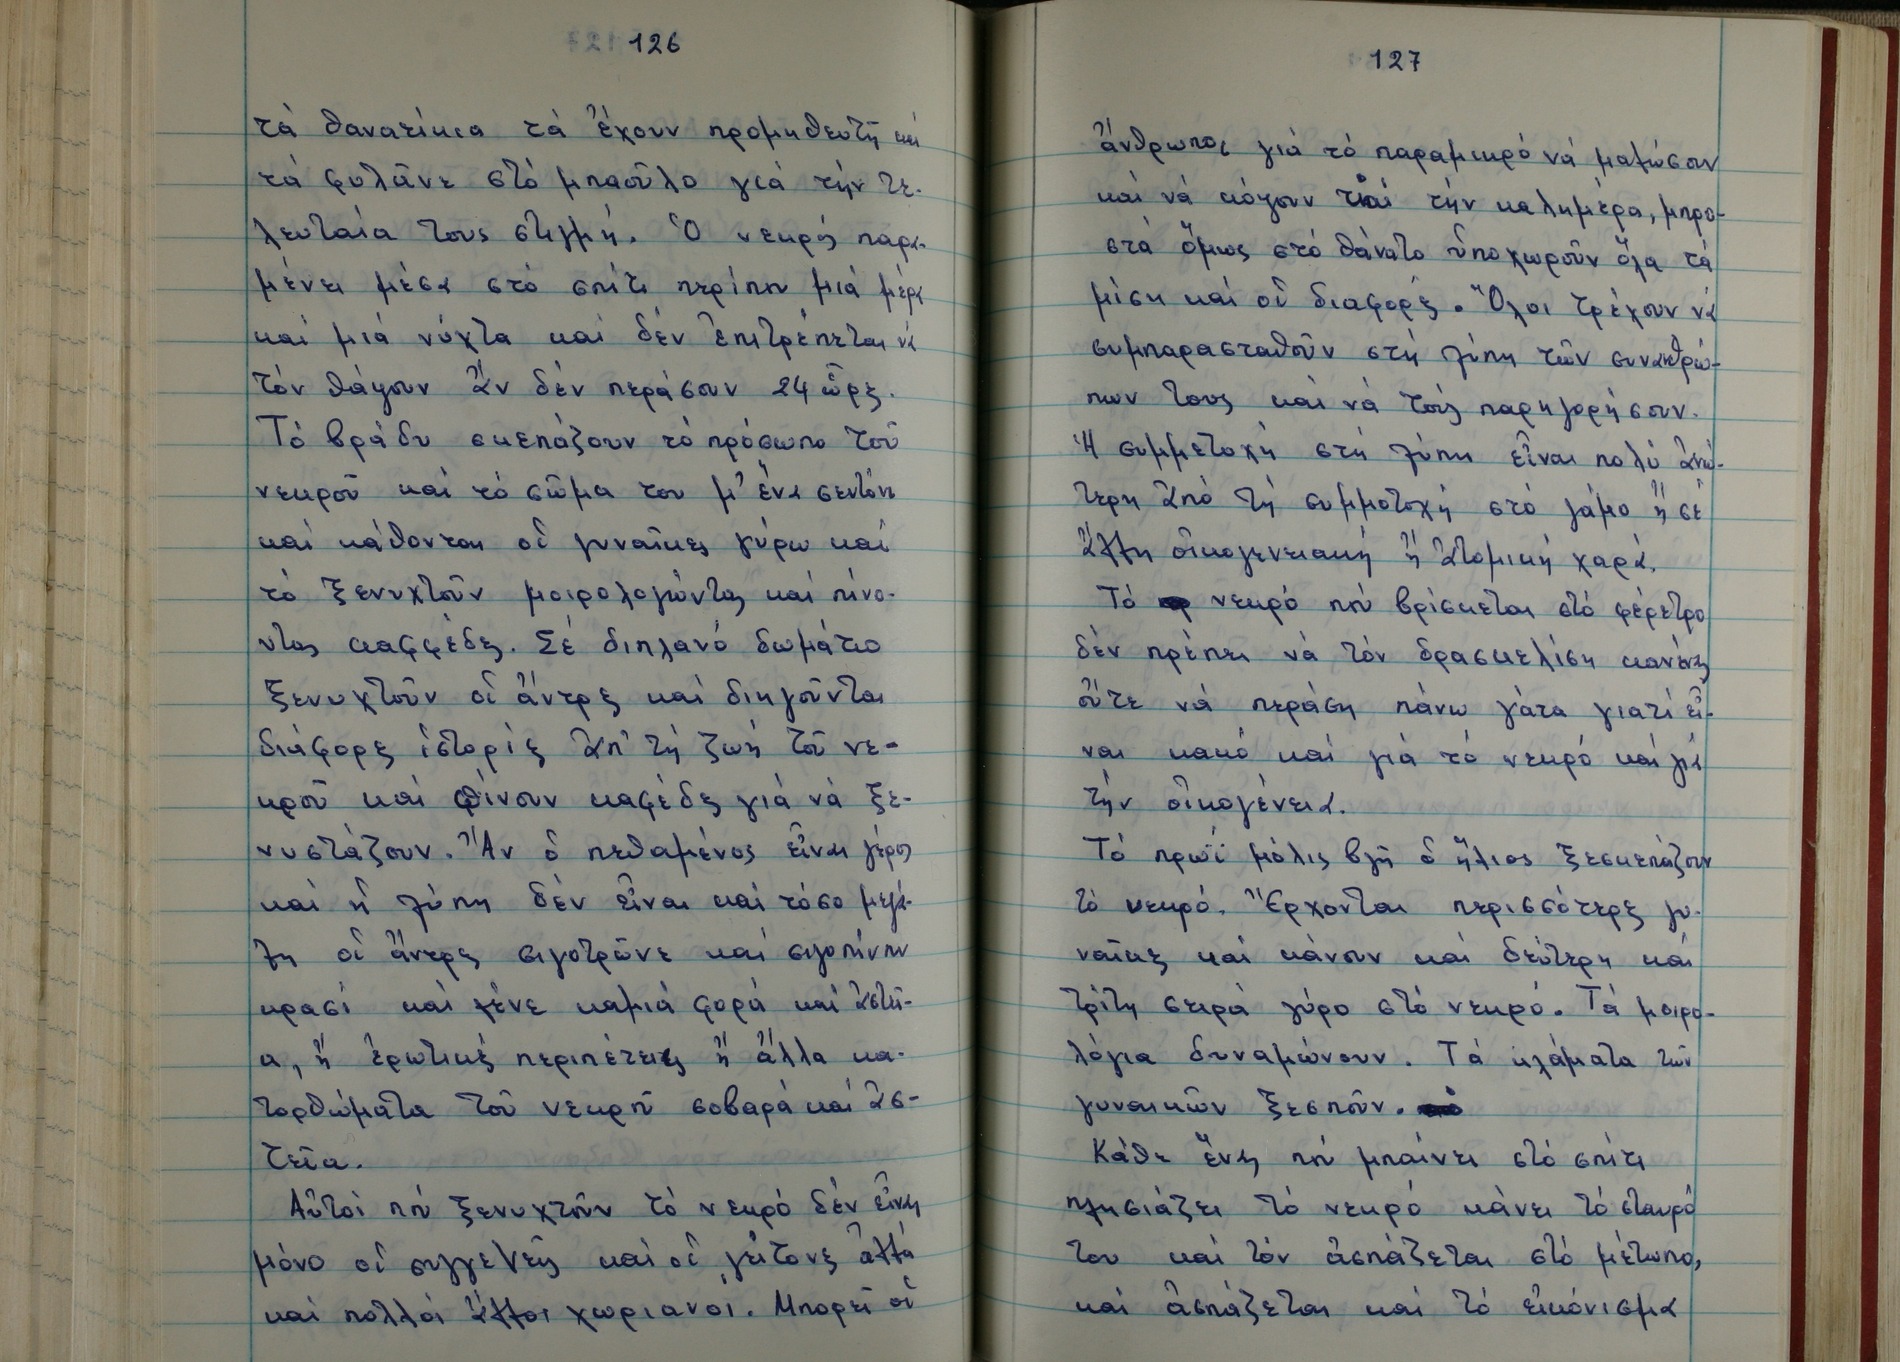 126
τά θανατίκια τά ἔχουν προμηθευτῆ καί
τά φυλᾶνε στό μπαοῦλο γιά τήν τε-
λευταία τους στιγμή. Ὁ νεκρός παρα-
μένει μέσα στό σπίτι περίπου μιά μέρα
καί μιά νύχτα καί δέν ἐπιτρέπεται νά
τόν θάψουν ἄν δέν περάσουν 24 ὧρες.
Τό βράδυ σκεπάζουν τό πρόσωπο τοῦ
νεκροῦ καί τό σῶμα του μ' ἕνα σεντόνι
καί κάθονται οἱ γυναῖκες γύρω καί
τό ξενυχτοῦν μοιρολογώντας καί πίνο-
ντας καφφέδες. Σέ διπλανό δωμάτιο
ξενυχτοῦν οἱ ἄντρες καί διηγοῦνται
διάφορες ἱστορίες ἀπ' τή ζωή τοῦ νε-
κροῦ καί πίνουν καφέδες γιά νά ξε-
νυστάζουν. Ἄν ὁ πεθαμένος εἶναι γέρος
καί ἡ λύπη δέν εἶναι καί τόσο μεγά-
λη οἱ ἄντρες σιγοτρῶνε καί σιγοπίνουν
κρασί καί λένε καμιά φορά καί ἀστεῖ-
α, ἤ ἐρωτικές περιπέτειες ἤ ἄλλα κα-
τορθώματα τοῦ νεκροῦ σοβαρά καί ἀσ-
τεῖα.
Αὐτοί πού ξενυχτοῦν τό νεκρό δέν εἶναι
μόνο οἱ συγγενεῖς καί οἱ γείτονες ἀλλά
καί πολλοί ἄλλοι χωριανοί. Μπορεῖ οἱ
127
ἄνθρωποι γιά τό παραμικρό νά μαλώσουν
καί νά κόψουν καί τήν καλημέρα, μπρο-
στά ὅμως στό θάνατο ὑποχωροῦν ὅλα τά
μίση καί οἱ διαφορές. Ὅλοι τρέχουν νά
συμπαρασταθοῦν στή λύπη τῶν συνανθρώ-
πων τους καί νά τούς παρηγορήσουν.
Ἡ συμμετοχή στή λύπη εἶναι πολύ ἀνώ-
τερη ἀπό τή συμμοτοχή στό γάμο ἤ σέ
ἄλλη οἰκογενειακή ἤ ἀτομική χαρά.
Τό νεκρό πού βρίσκεται στό φέρετρο
δέν πρέπει νά τόν δρασκελίση κανένας
οὔτε νά περάση πάνω γάτα γιατί εἶ-
ναι κακό καί γιά τό νεκρό καί γιά
τήν οἰκογένεια.
Τό πρωΐ μόλις βγῆ ὁ ἥλιος ξεσκεπάζουν
τό νεκρό. Ἔρχονται περισσότερες γυ-
ναῖκες καί κάνουν καί δεύτερη καί
τρίτη σειρά γύρο στό νεκρό. Τά μοιρο-
λόγια δυναμώνουν. Τά κλάματα τῶν
γυναικῶν ξεσποῦν.
Κάθε ἕνας πού μπαίνει στό σπίτι
πλησιάζει τό νεκρό κάνει τό σταυρό
του καί τόν ἀσπάζεται στό μέτωπο,
καί ἀσπάζεται καί τό εἰκόνισμα